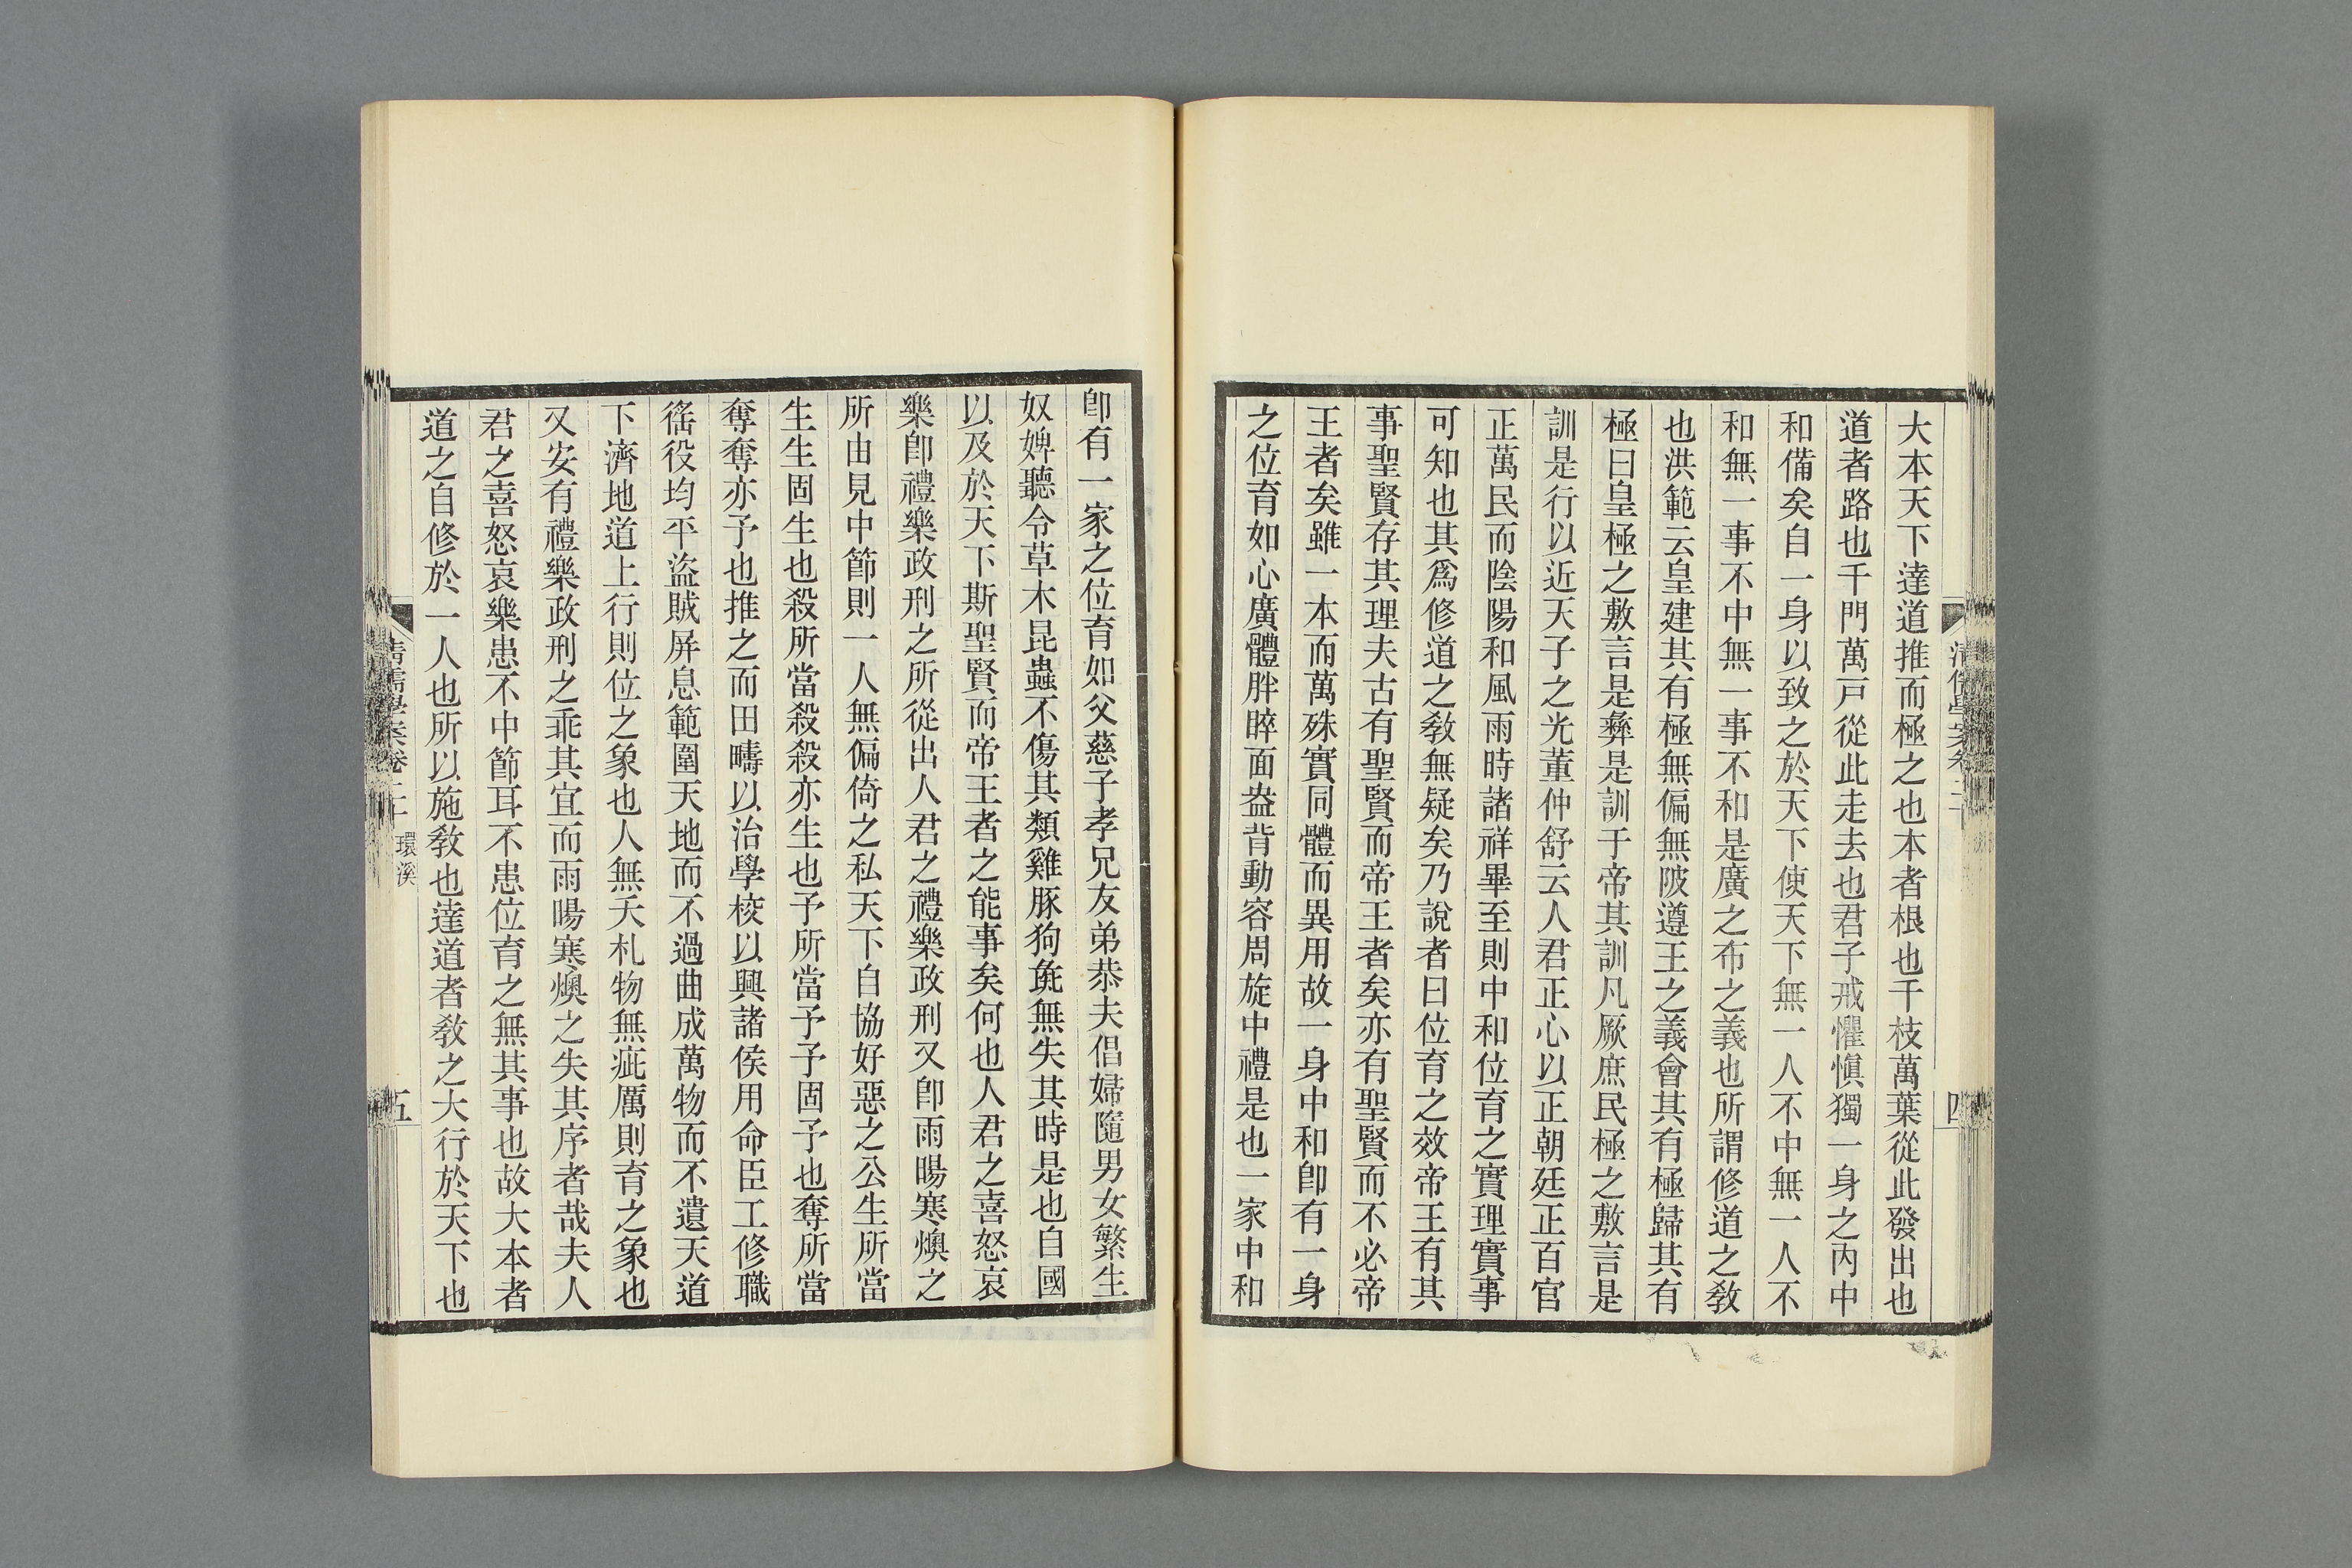 大本天下達道推而極之也本者根也千枝萬葉從此發出也
道者路也千門萬戸從此走去也君子戒懼愼獨一身之內中
和備矣自一身以致之於天下使天下無一人不中無一人不
和無一事不中無一事不和是廣之布之義也所謂修道之敎
也洪範云皇建其有極無偏無陂遵王之義會其有極歸其有
極曰皇極之敷言是彝是訓于帝其訓凡厥庶民極之敷言是
訓是行以近天子之光董仲舒云人君正心以正朝廷正百官
正萬民而陰陽和風雨時諸祥畢至則中和位育之實理實事
可知也其爲修道之敎無疑矣乃說者曰位育之效帝王有其
事聖賢存其理夫古有聖賢而帝王者矣亦有聖賢而不必帝
王者矣雖一本而萬殊實同體而異用故一身中和卽有一身
之位育如心廣體胖睟面盎背動容周旋中禮是也一家中和
卽有一家之位育如父慈子孝兄友弟恭夫倡婦隨男女繁生
奴婢聽令草木昆蟲不傷其類雞豚狗彘無失其時是也自國
以及於天下斯聖賢而帝王者之能事矣何也人君之喜怒哀
樂卽禮樂政刑之所從出人君之禮樂政刑又卽雨暘寒燠之
所由見中節則一人無偏倚之私天下自協好惡之公生所當
生生固生也殺所當殺殺亦生也予所當予予固予也奪所當
奪奪亦予也推之而田疇以治學校以興諸侯用命臣工修職
徭役均平盜賊屏息範圍天地而不過曲成萬物而不遺天道
下濟地道上行則位之象也人無夭札物無疵厲則育之象也
又安有禮樂政刑之乖其宜而雨暘寒燠之失其序者哉夫人
君之喜怒哀樂患不中節耳不患位育之無其事也故大本者
道之自修於一人也所以施敎也達道者敎之大行於天下也
清儒學案卷二十 環溪
五